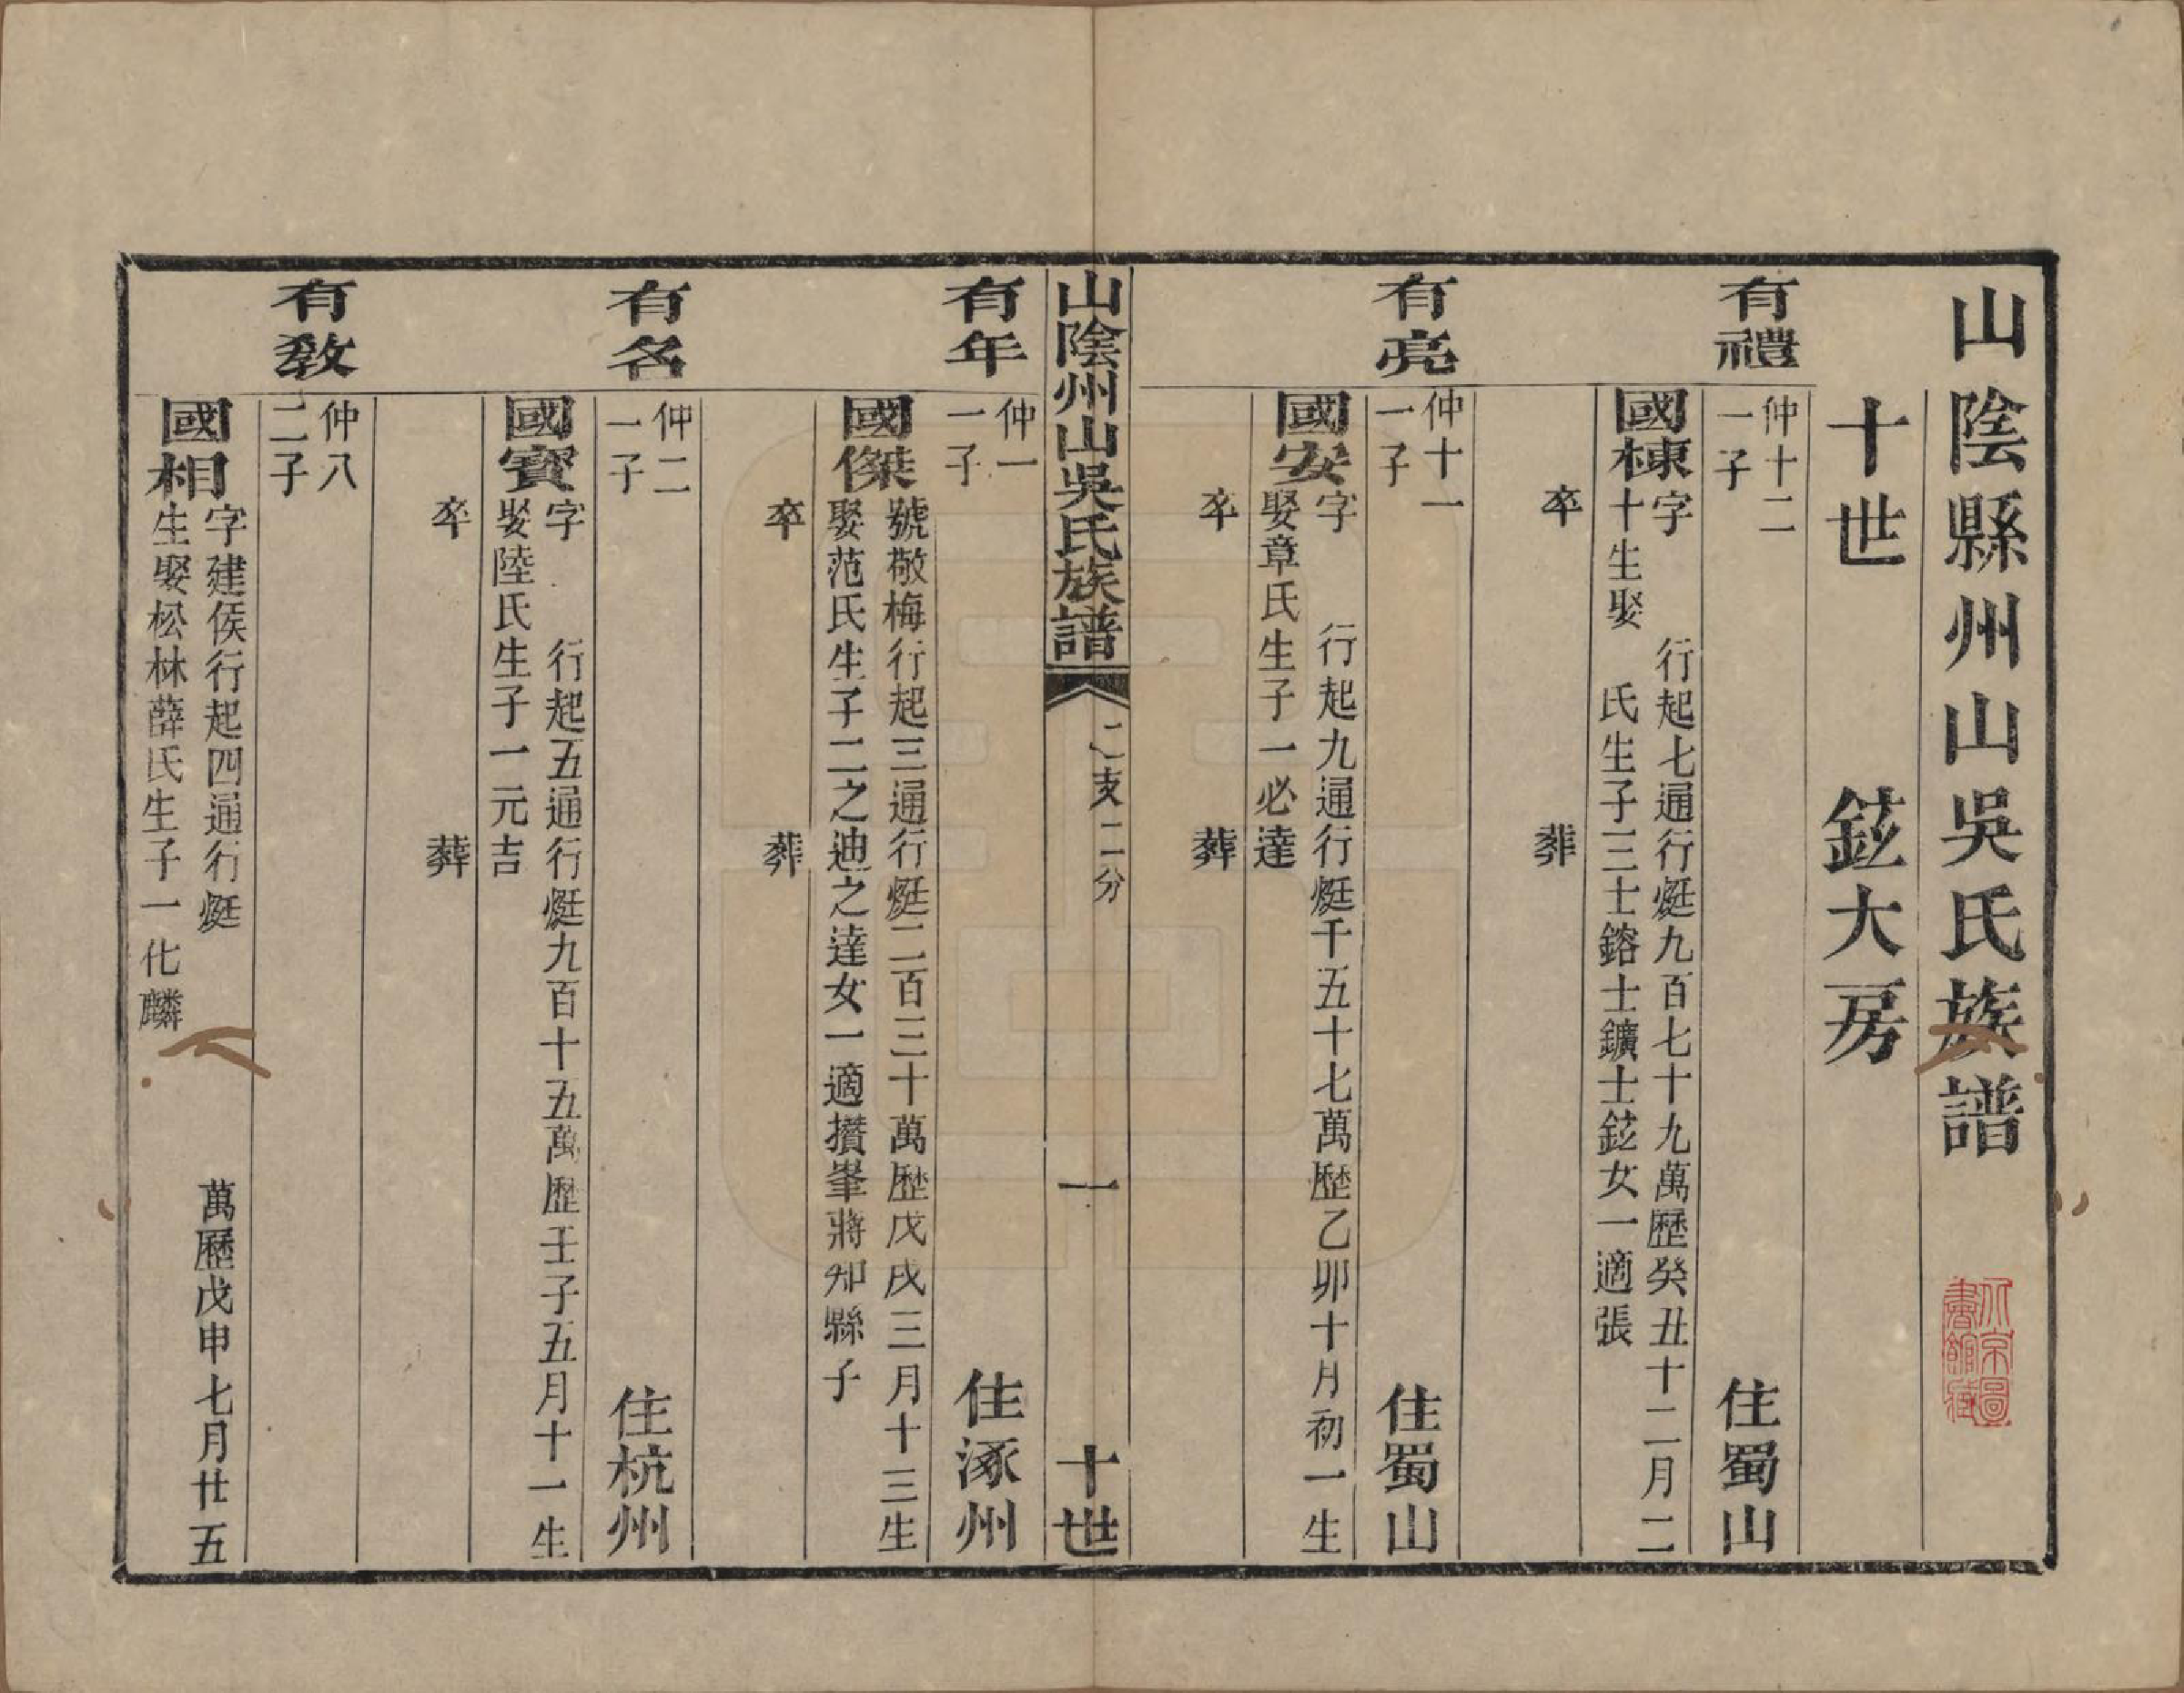 山陰縣州山吳氏族譜
十世　鉉大房
有禮
仲十二
一子
住蜀山
國棟
字　行起七通行烶九百七十九萬歷癸丑十二月二
十生娶　氏生子三士鎔士鑛士鉉女一適張
卒　葬
有亮
仲十一
一子
住蜀山
國安
字　行起九通行烶千五十七萬歷乙卯十月初一生
娶章氏生子一必達
卒　葬
山陰州山吳氏族譜
支二分
一
十世
有年
仲一
一子
住涿州
國傑
號敬梅行起三通行烶二百三十萬歷戊戌三月十三生
娶范氏生子二之迪之達女一適攢峯蔣知縣子
卒　葬
有名
仲二
一子
住杭州
國寶
字　行起五通行烶九百十五萬歷壬子五月十一生
娶陸氏生子一元吉
卒　葬
有教
仲八
二子
國相
字建侯行起四通行烶　萬歷戊申七月廿五
生娶松林薛氏生子一化麟